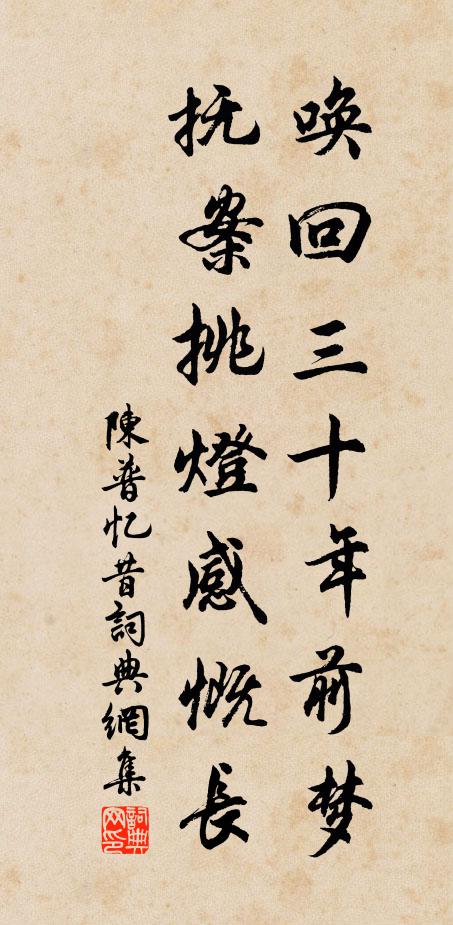 唤回三十年前梦
抚案挑燈感慨长
陳普忆昔詞典網集
詞典网印